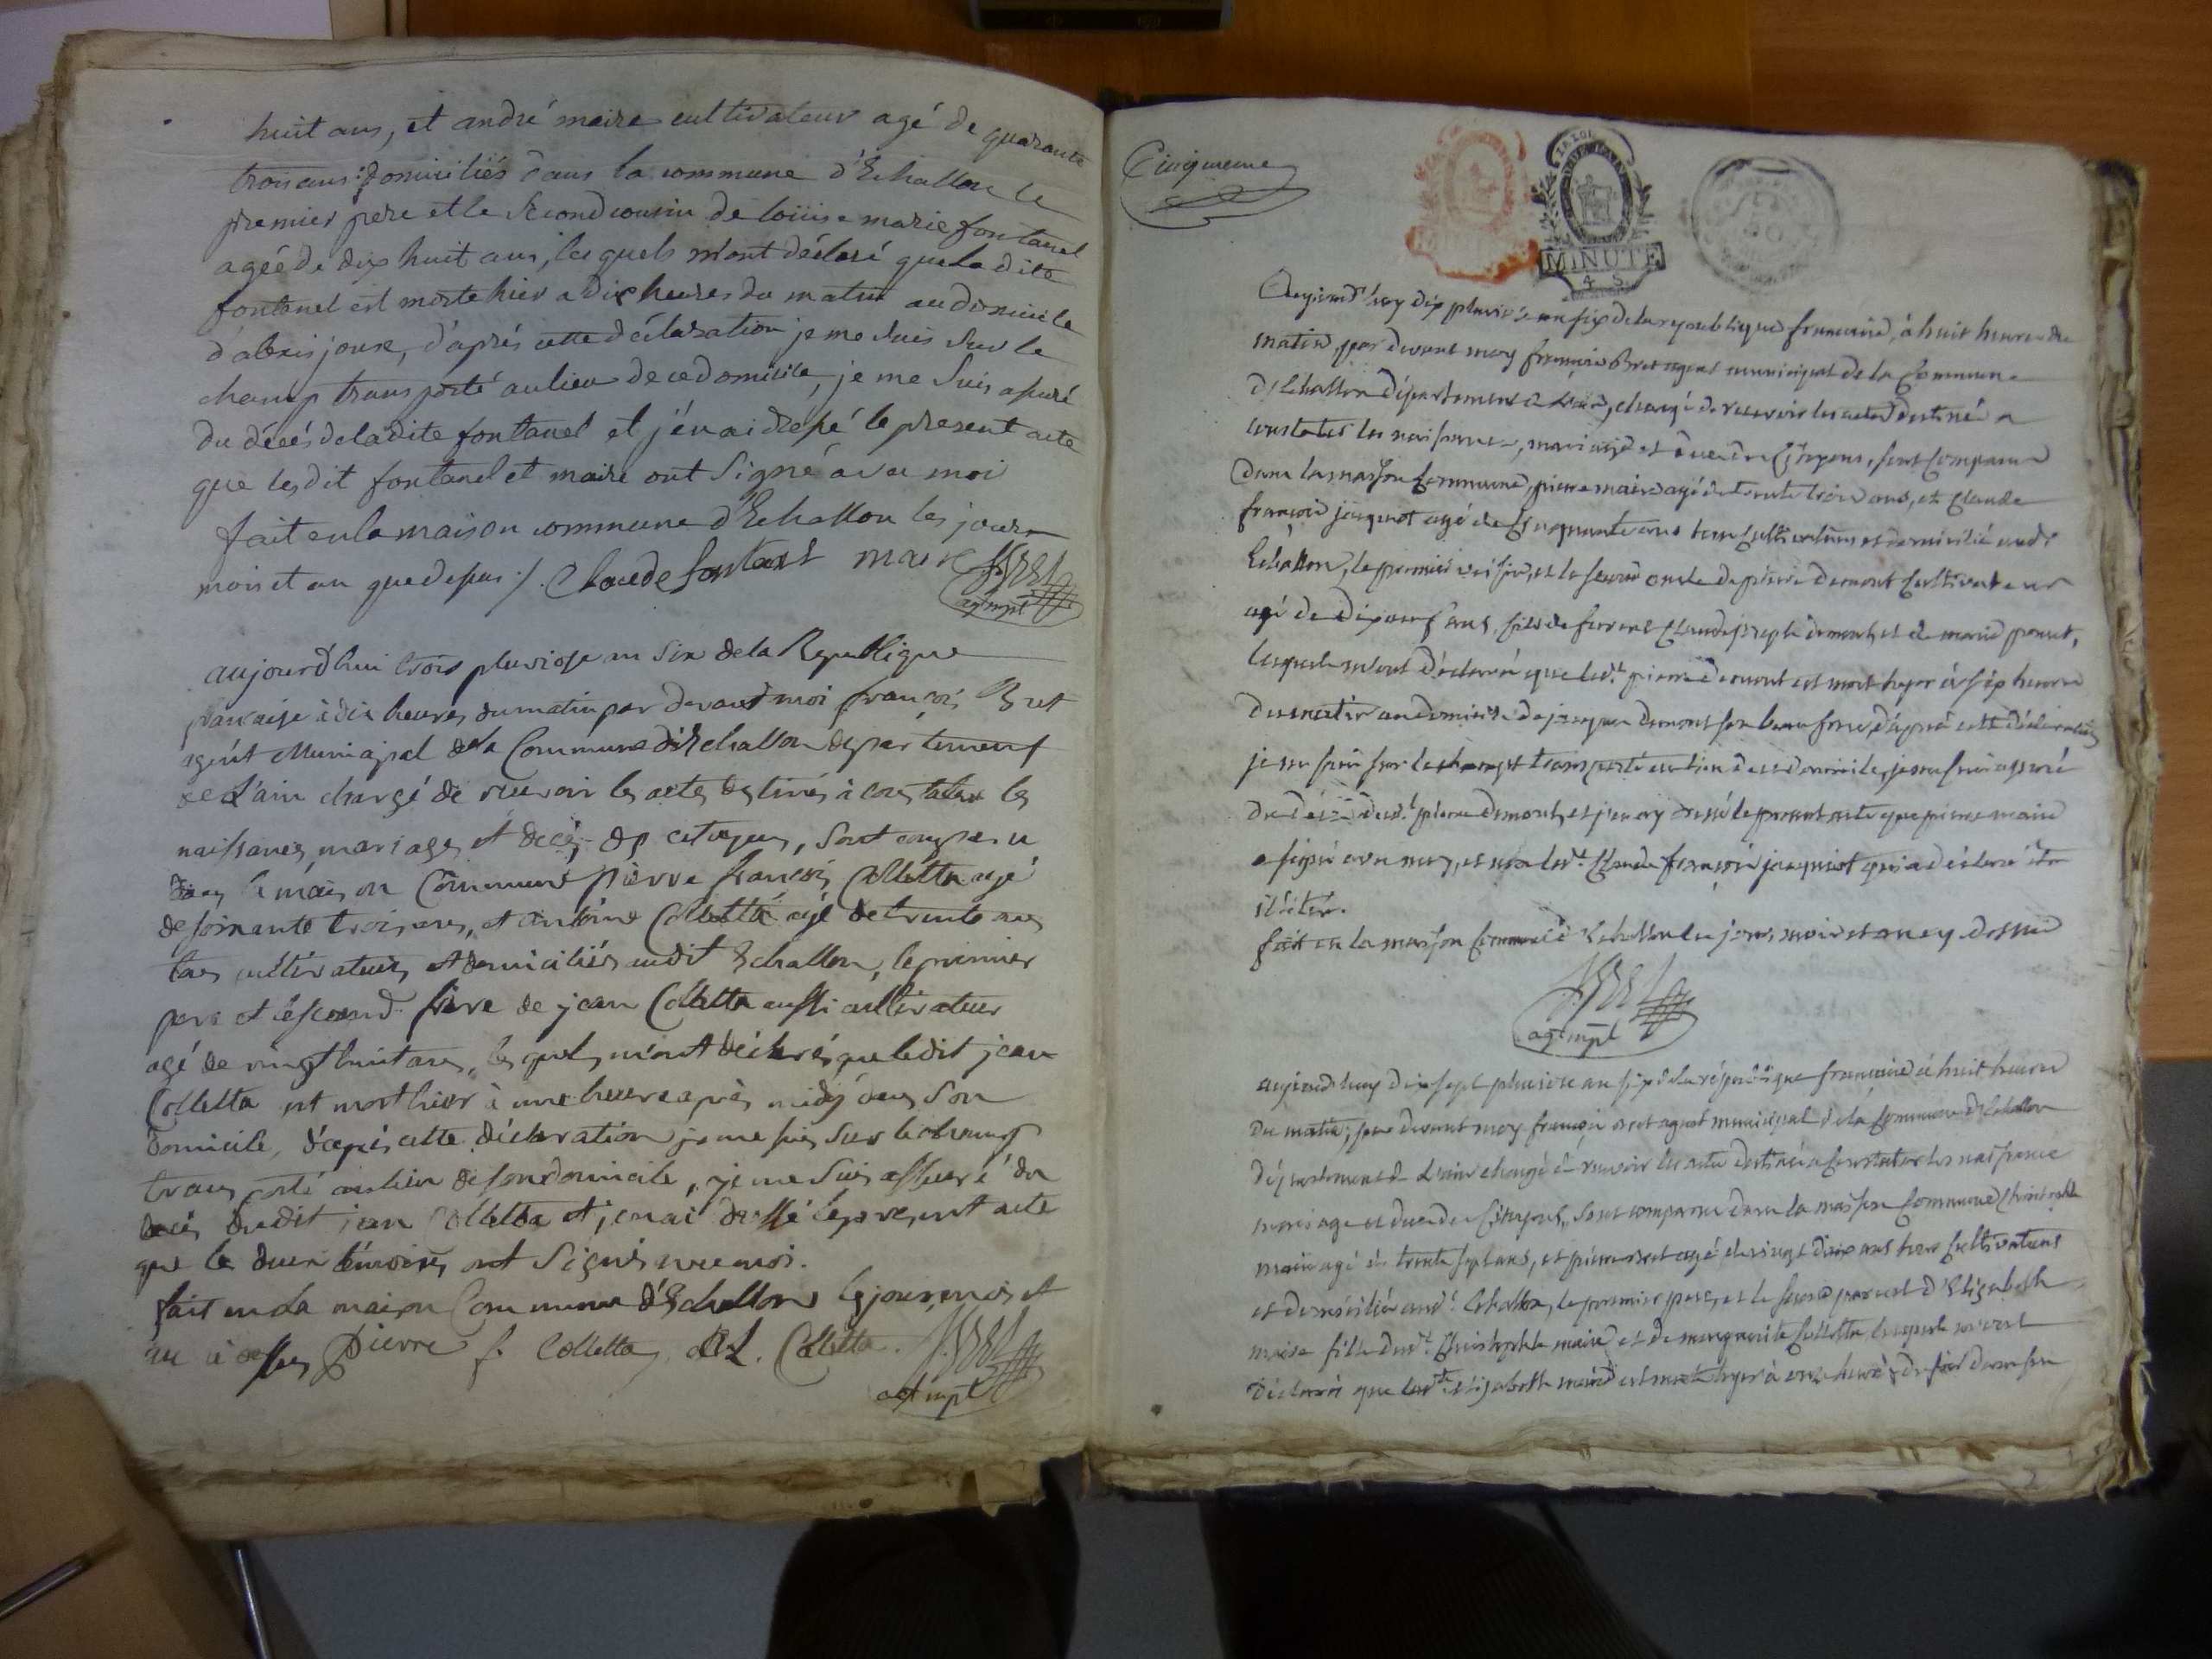 huit ans, et andré maire cultivateur agé de quarante
trois ans domiciliés dans la commune d'Echallon le
premier pere et le second cousin de loüise marie fontanel
agée de dix huit ans, les quels m'ont déclaré que la dite
fontanel est morte hier a dix heures du matin au domicile
d'alexis joux, d'après cette déclaration je me suis sur le
champ transporté au lieu de ce domicile, je me suis assuré
du décés de la dite fontanel et j'en ai dressé le present acte
que les dit fontanel et maire ont signé avec moi
fait en la maison commune d'Echallon les jours
mois et an que dessus /. Claude fontanel maire
agt mpl
aujourdhui trois pluviose an six de la Republique
francaise à dix heures du matin par devant moi françois Bret
agent Municipal de la Commune d'Echallon departement
de L'ain chargé de recevoir les actes destinés à constater les
naissances, mariages et decés des citoyens, sont comparu
dans la maison Commune pierre francois Colletta agé
de soixante trois ans, et antoine Colletta agé de trente ans
tous cultivateurs et domiciliés audit Echallon, le premier
pere et le second frere de jean Colletta aussi cultivateur
agé de vingt huit ans, les quels m'ont déclaré que ledit jean
Colletta est mort hier à une heure après midy dans son
domicile, d'après cette déclaration je me suis sur le champ
transporté au lieu de son domicile, je me suis assuré du
decés dudit jean Colletta et j'en ai dressé le present acte
que les deux témoins ont signés avec moi.
fait en la maison Commune d'Echallon les jour mois et
an Pierre f. Colletta, Colletta.
agt mpl
Cinquieme
MINUTE
4 S
50
Aujourd'huy dix pluviose an six de la republique francaise, à huit heures du
matin par devant moy francois Bret agent municipal de la Commune
d'Echallon département de l'ain, chargé de recevoir les actes destiné a
constater les naissances, mariages et decés des Citoyens, sont comparu
dans la maison Commune, pierre maire agé de trente trois ans, et Claude
françois jacquiot agé de Cinquante ans tous Cultivateurs et domicilié aud.t
Echallon, le premier voisin, et le second oncle de pierre demont Cultivateur
agé de dix neuf ans, fils de Claude joseph demont, et de marie ponset,
lesquels m'ont déclaré que led.t pierre demont est mort hyer à six heures
du matin au domicile de jacques demont son d'après cette déclaration
je me suis sur le champt transporté au lieu de ce domicile, je me suis assuré
du décés dud.t pierre demont, et j'en ay dressé le present acte que pierre maire
a signé avec moy, et non led.t Claude françois jacquiot qui a déclaré être
illitéré.
fait en la maison Commune d'Echallon les jour, mois et an cy dessus
agt mpl
aujourd'huy dix sept pluviose an six de la république francaise à huit heures
du matin, par devant moy françois bret agent municipal de la Commune d'Echallon
département de L'ain chargé de recevoir les actes destiné a Constater les naissance
mariage et decés des Citoyens, sont comparu dans la maison Commune Christophle
maire agé de trente sept ans, et pierre bret agé de vingt ans tous Cultivateurs
et domicilié aud.t Echallon, le premier pere, et le second parent d'Elizabeth
maire fille dud.t Christophle maire et de marguerite Colletta, lesquels m'ont
déclaré que lad.te elizabeth maire est morte hyer à onze heures du soir dans son